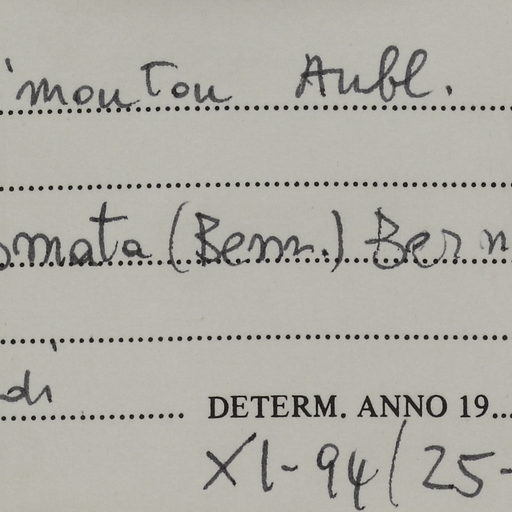 'moutou Aubl.
omata (Benn.) Bern
di
DETERM. ANNO 19
XI-94/25-